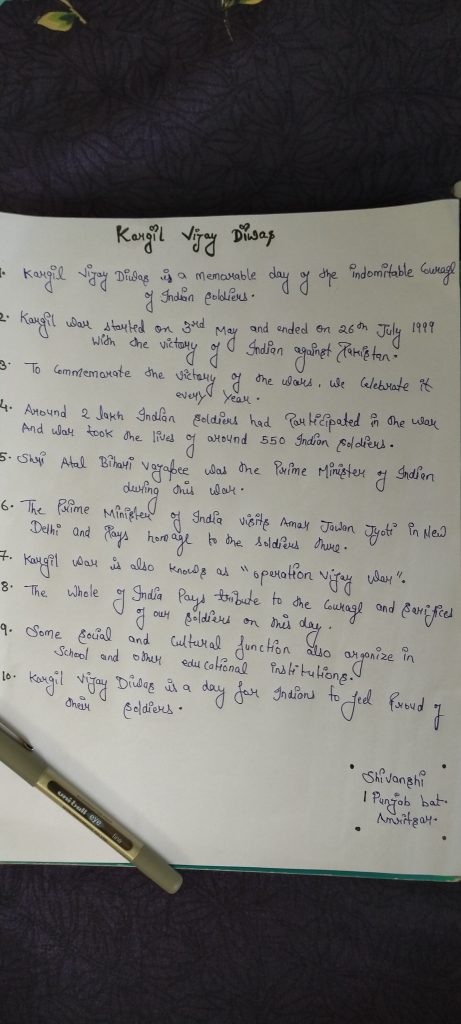 Kargil Vijay Diwas
1. Kargil Vijay Diwas is a memorable day of the indomitable Couragl
of Indian soldiers.
2. Kargil war started on 3rd May and ended on 26th July 1999
With the victory of Indian against Pakistan.
3. To Commemorate the victory of the wars, we Celebrate it
every year.
4. Around 2 lakh Indian soldiers had Participated in the war
And war took the lives of around 550 Indian soldiers.
5. Shri Atal Bihari Vajapbee was the Prime Minister of Indian
during this war.
6. The Prime Minister of India visits Amar Jawan Jyoti in New
Delhi and Pays homage to the soldiers there.
7. Kargil war is also knows as "operation Vijay war".
8. The whole of India Pays tribute to the Couragl and Sacrifices
of our soldiers on this day.
9. Some social and Cultural function also organize in
School and other educational institutions.
10. Kargil Vijay Diwas is a day for Indians to feel Proud of
their soldiers.
Shivanshi
1 Punjab bat.
Amritsar.
uni-ball eye
fine